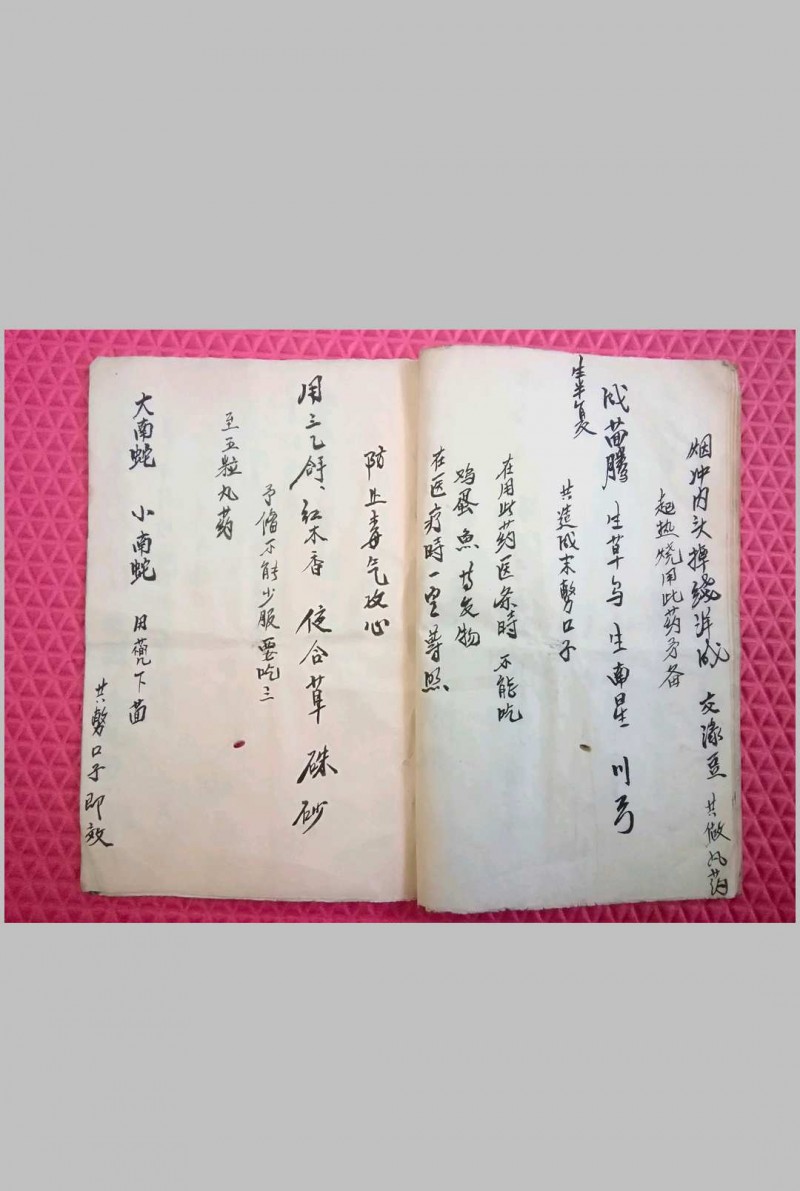 烟冲内头掉线洋成 交渌豆 共做丸药
起热烧用此药矛备
成苗腾 生草乌 生南星 川弓
生半夏
共造成末敷口子
在用此药医条时 不能吃
鸡蛋 鱼 等发物
在医疗時一里等照
防止毒气攻心
用三乙 红木香 合草 硃砂
予备不能少服 要吃三
至五粒丸药
大南蛇 小南蛇 下面
共敷口子即效